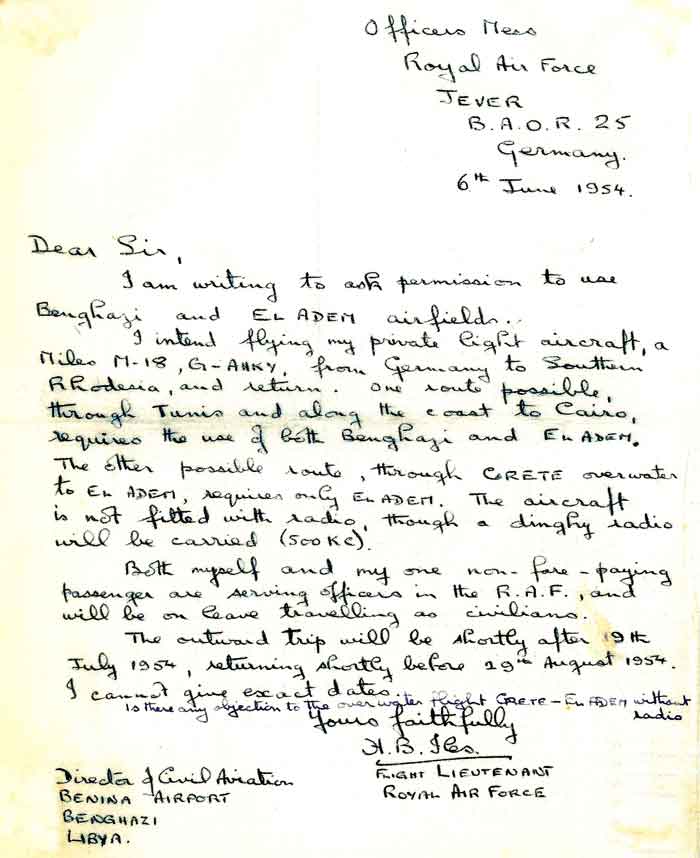 Officers Mess
Royal Air Force
JEVER
B.A.O.R. 25
Germany.
6th June 1954.
Dear Sir,
I am writing to ask permission to use
Benghazi and EL ADEM airfields.
I intend flying my private light aircraft, a
Miles M-18, G-AHKY, from Germany to Southern
RRodesia, and return. One route possible,
through Tunis and along the coast to Cairo,
requires the use of both Benghazi and EL ADEM.
The other possible route, through CRETE overwater
to EL ADEM, requires only EL ADEM. The aircraft
is not fitted with radio, though a dinghy radio
will be carried (500 KC).
Both myself and my one non-fare-paying
passenger are serving officers in the R.A.F., and
will be on leave travelling as civilians.
The outward trip will be shortly after 19th
July 1954, returning shortly before 29th August 1954.
I cannot give exact dates.
Is there any objection to the over water flight CRETE-EL ADEM without
radio
Yours faithfully
H. B.
FLIGHT LIEUTENANT
ROYAL AIR FORCE
Director of Civil Aviation
BENINA AIRPORT
BENGHAZI
LIBYA.